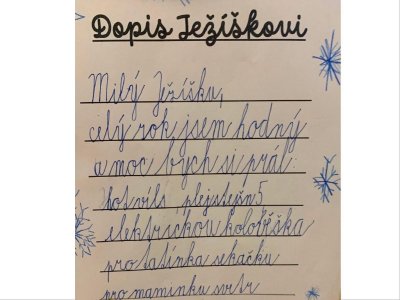 Dopis Ježíškovi
Milý Ježíšku,
celý rok jsem hodný
a moc bych si přál:
hot víls, plejstejšn 5
elektrickou koloběška
pro tatínka sekačku
pro maminku svetr